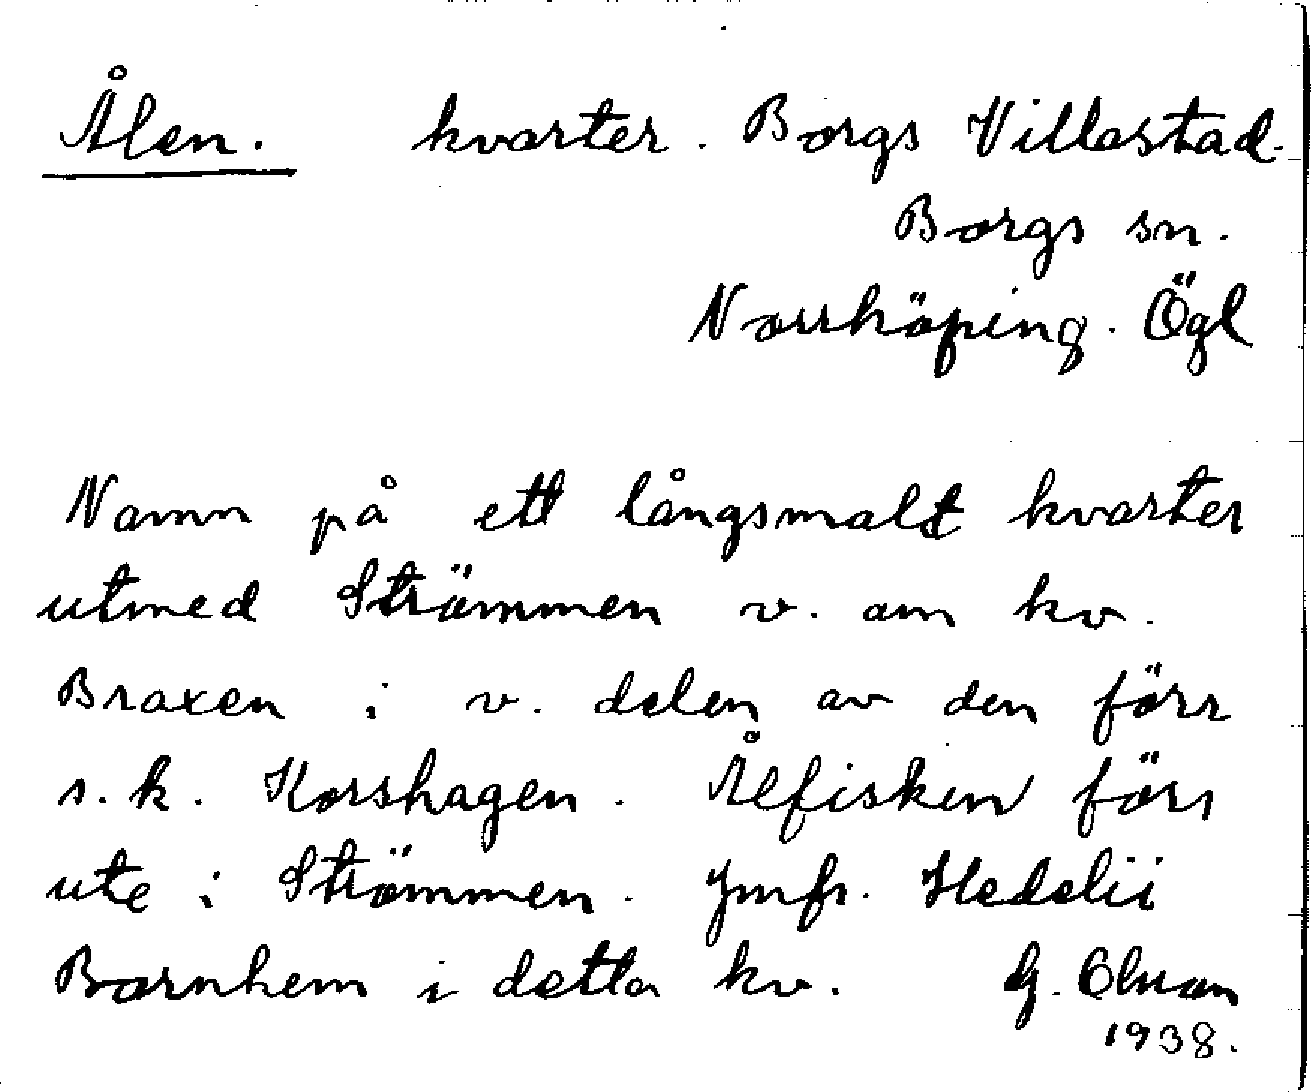 Ålen. kvarter. Borgs Villastad.
Borgs sn.
Norrköping. Ögl
Namn på ett långsmalt kvarter
utmed Strömmen v. om kv.
Braxen i v. delen av den förr
s.k. Korshagen. Ålfisken förr
ute i Strömmen. Jmfr. Hedelii
Barnhem i detta kv. G. Olson
1938.